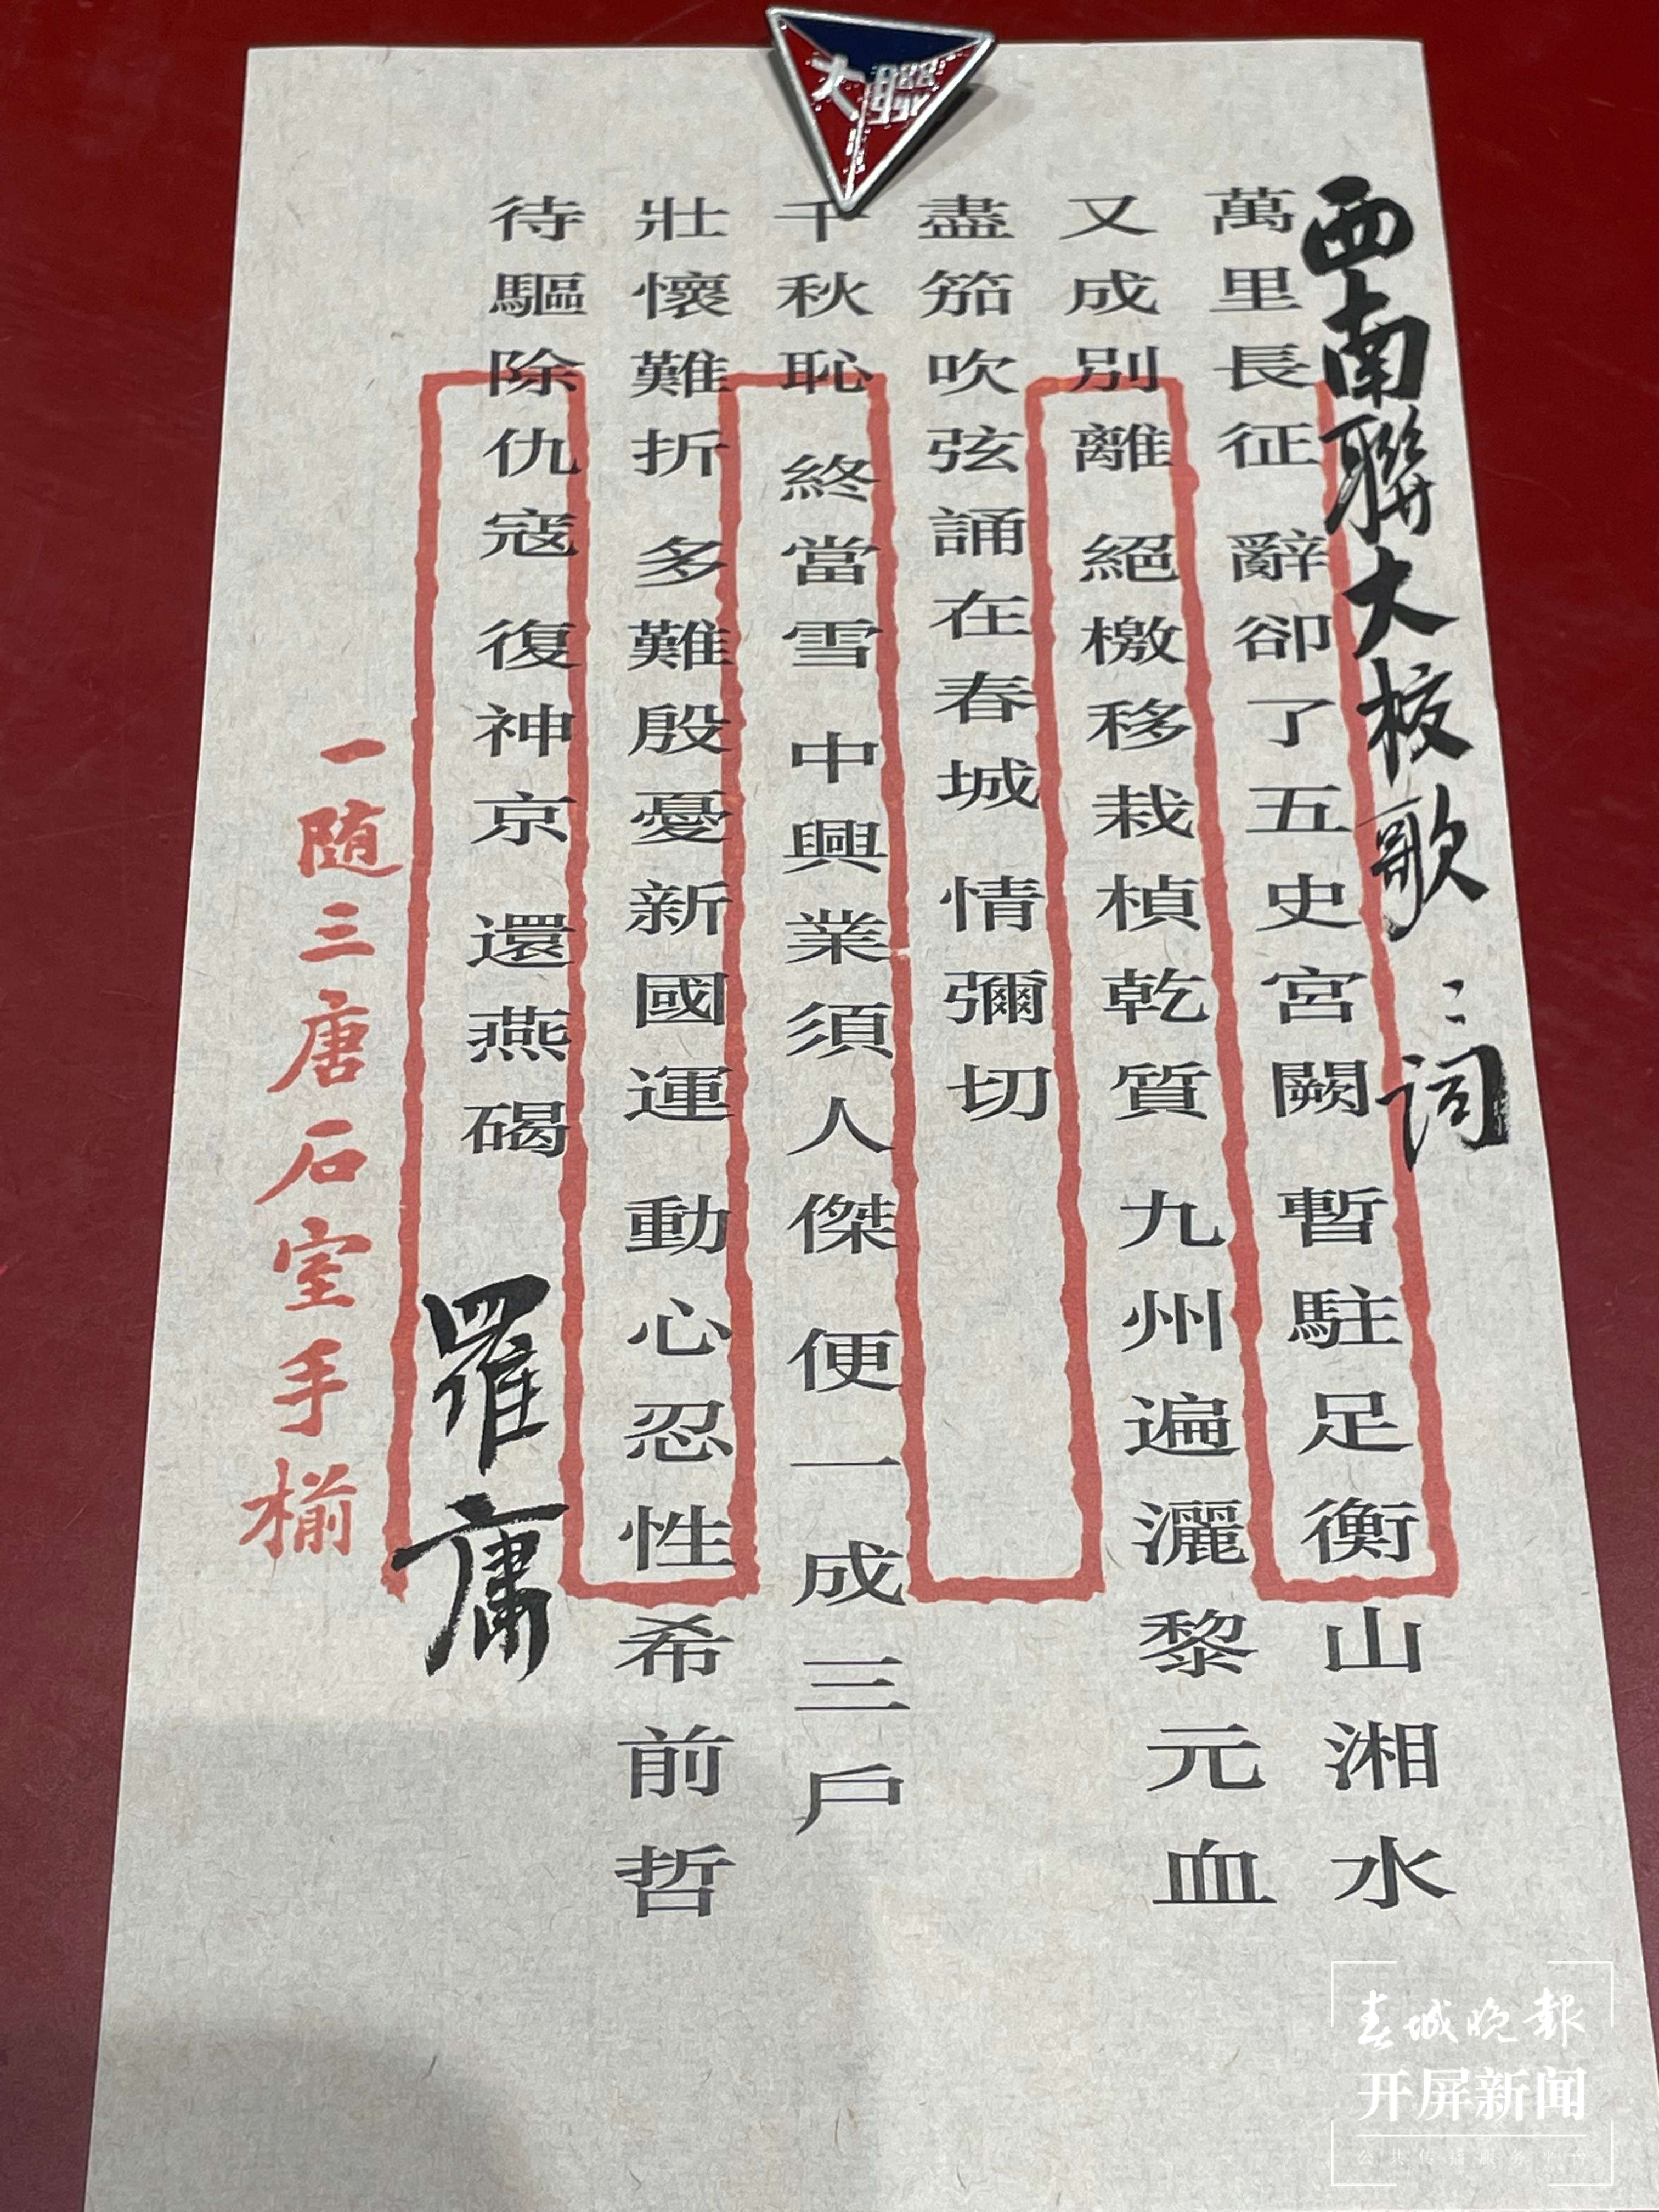 大聯
西南聯大校歌：詞
萬里長征 辭卻了五史宮闕 暫駐足衡山湘水
又成別離 絕檄移栽楨乾質 九州遍灑黎元血
盡笳吹弦誦在春城 情彌切
千秋恥 終當雪 中興業須人傑 便一成三戶
壯懷難折 多難殷憂新國運 動心忍性希前哲
待驅除仇寇 復神京 還燕碣
羅庸
一随三唐石室手㨵
春城晚報
开屏新闻